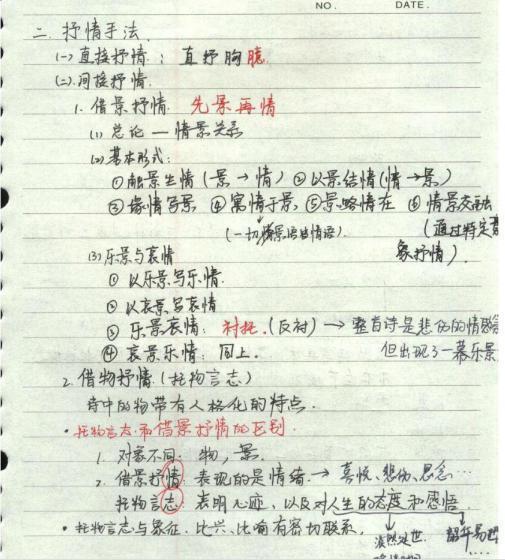 NO. DATE.
二. 抒情手法.
(一) 直接抒情: 直抒胸臆
(二). 间接抒情.
1. 借景抒情. 先景再情
(1) 总论 — 情景关系
(2) 基本形式:
① 触景生情 (景→情) ② 以景结情 (情→景)
③ 缘情写景 ④ 寓情于景 ⑤ 景略情在 ⑥ 情景交融
(一切景语皆情语). (通过特定意
象抒情).
(3) 乐景与哀情
① 以乐景写乐情.
② 以哀景写哀情
③ 乐景哀情: 衬托. (反衬) → 整首诗是悲伤的情
④ 哀景乐情: 同上. 但出现了一幕乐景
2. 借物抒情 (托物言志)
诗中的物带有人格化的特点.
• 托物言志和借景抒情的区别
1. 对象不同. 物, 景.
2. 借景抒情: 表现的是情绪. → 喜悦、悲伤、思念…
托物言志: 表明心迹, 以及对人生的态度和感悟
• 托物言志与象征、比兴、比喻有密切联系. 淡然处世. 韶华易逝